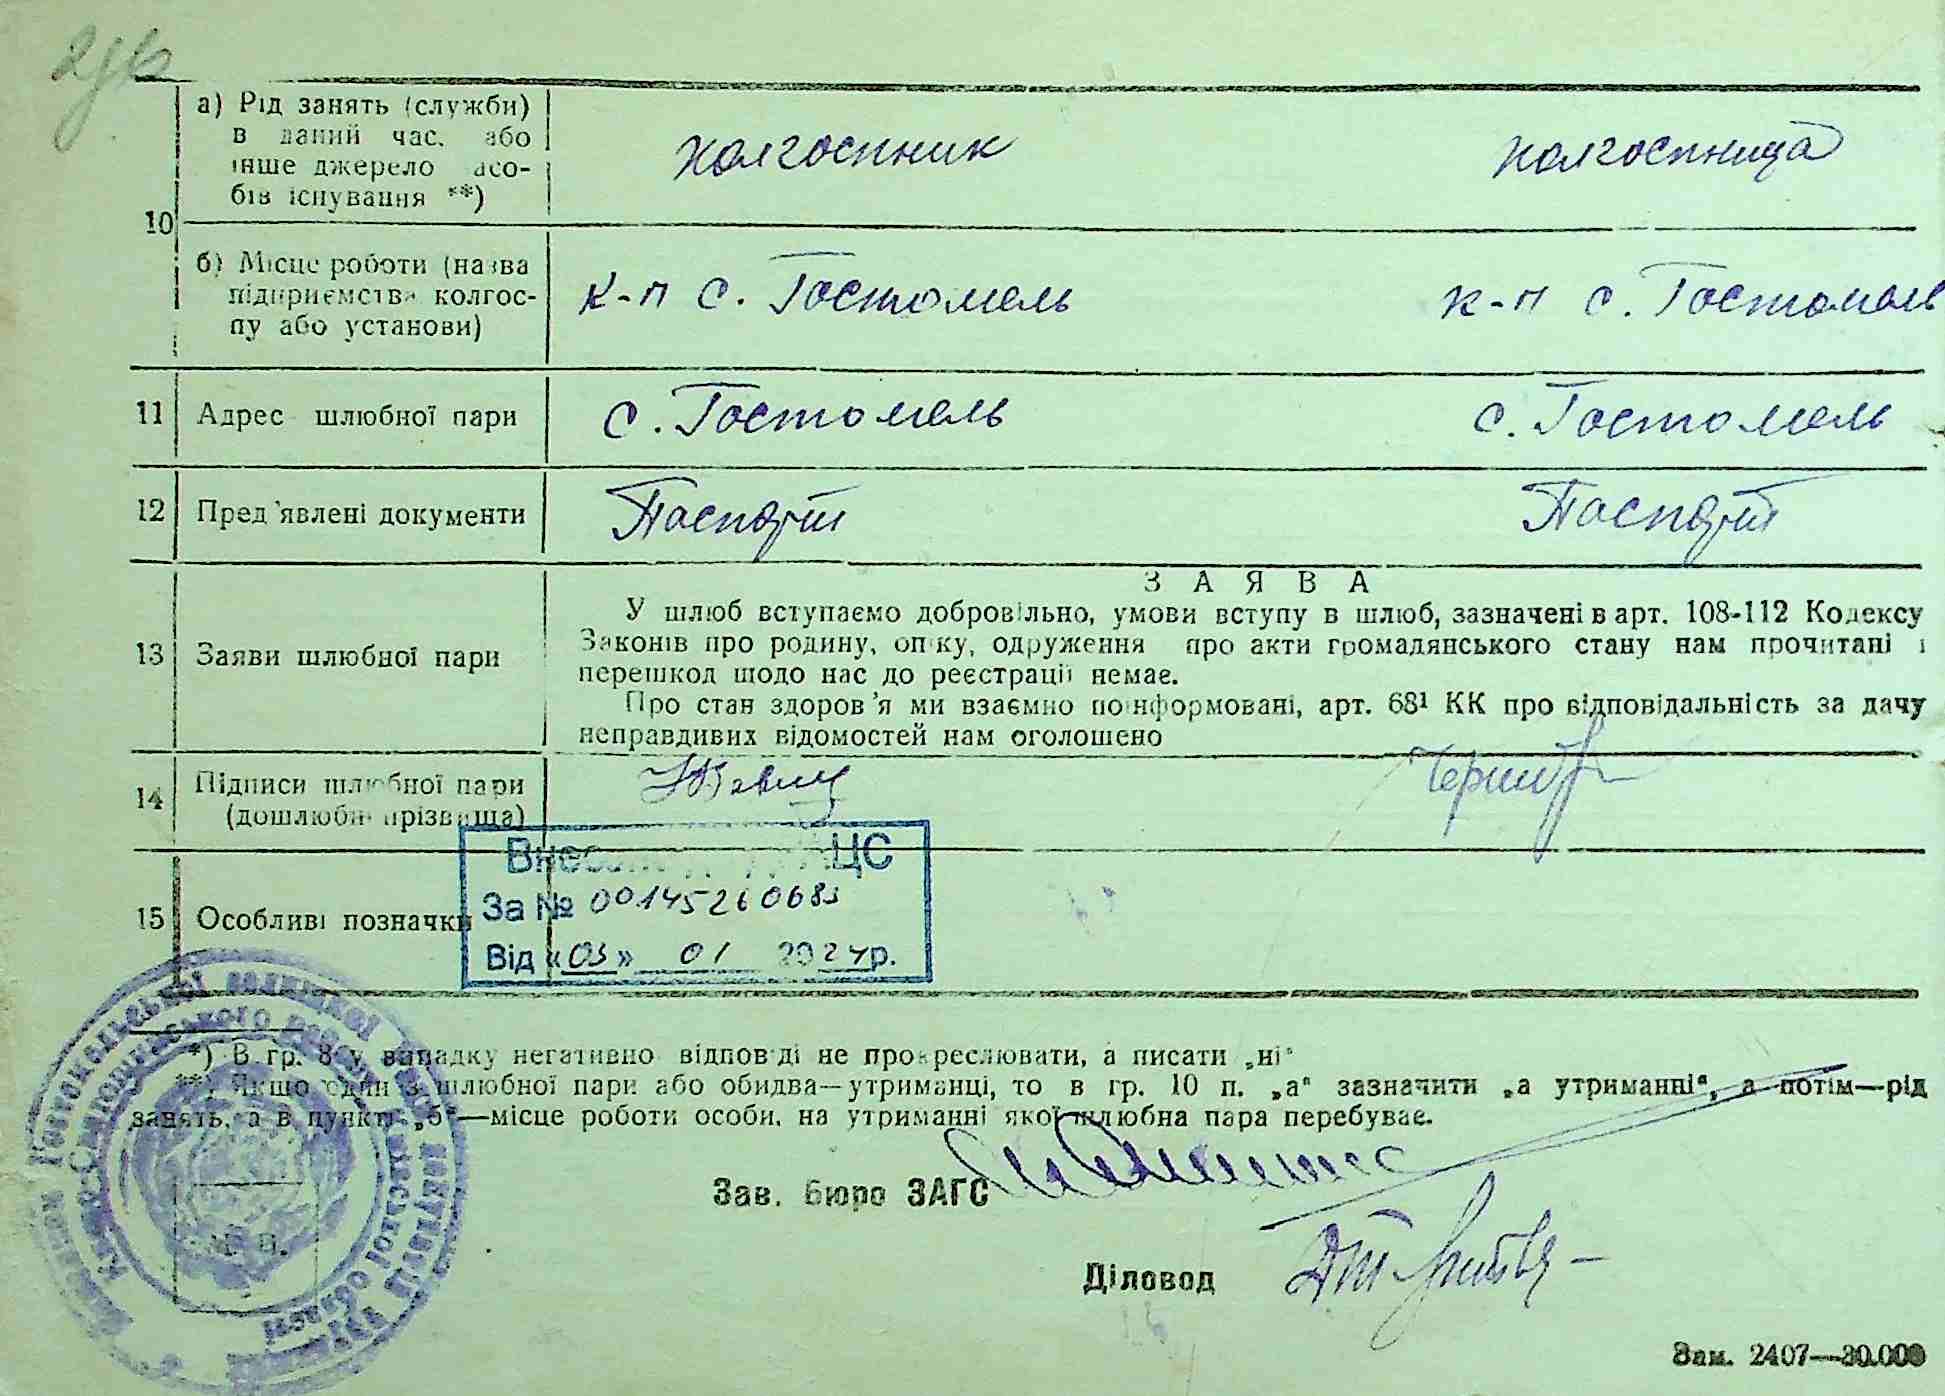 10
а) Рід занять (служби)
в даний час, або
інше джерело засо-
бів існування **)
колгоспник
колгоспниця
б) Місце роботи (назва
підприємства колгос-
пу або установи)
к-п с. Гостомель
к-п с. Гостомель
11 Адрес шлюбної пари
с. Гостомель
с. Гостомель
12 Пред'явлені документи
Паспорт
Паспорт
13 Заяви шлюбної пари
ЗАЯВА
У шлюб вступаємо добровільно, умови вступу в шлюб, зазначені в арт. 108-112 Кодексу
Законів про родину, опіку, одруження про акти громадянського стану нам прочитані і
перешкод щодо нас до реєстрації немає.
Про стан здоров'я ми взаємно поінформовані, арт. 68¹ КК про відповідальність за дачу
неправдивих відомостей нам оголошено
14 Підписи шлюбної пари
(дошлюбні прізвища)
15 Особливі позначки
Внесено до ДРАЦС
За № 00145260683
Від «03» 01 2024р.
*) В гр. 8 у випадку негативно відповіді не прокреслювати, а писати „ні"
**) Якщо один з шлюбної пари або обидва—утриманці, то в гр. 10 п. „а" зазначити „а утриманні", а потім—рід
занять, а в пункті „б"—місце роботи особи, на утриманні якої шлюбна пара перебуває.
Зав. бюро ЗАГС
М. П.
Діловод
Зам. 2407—30.000